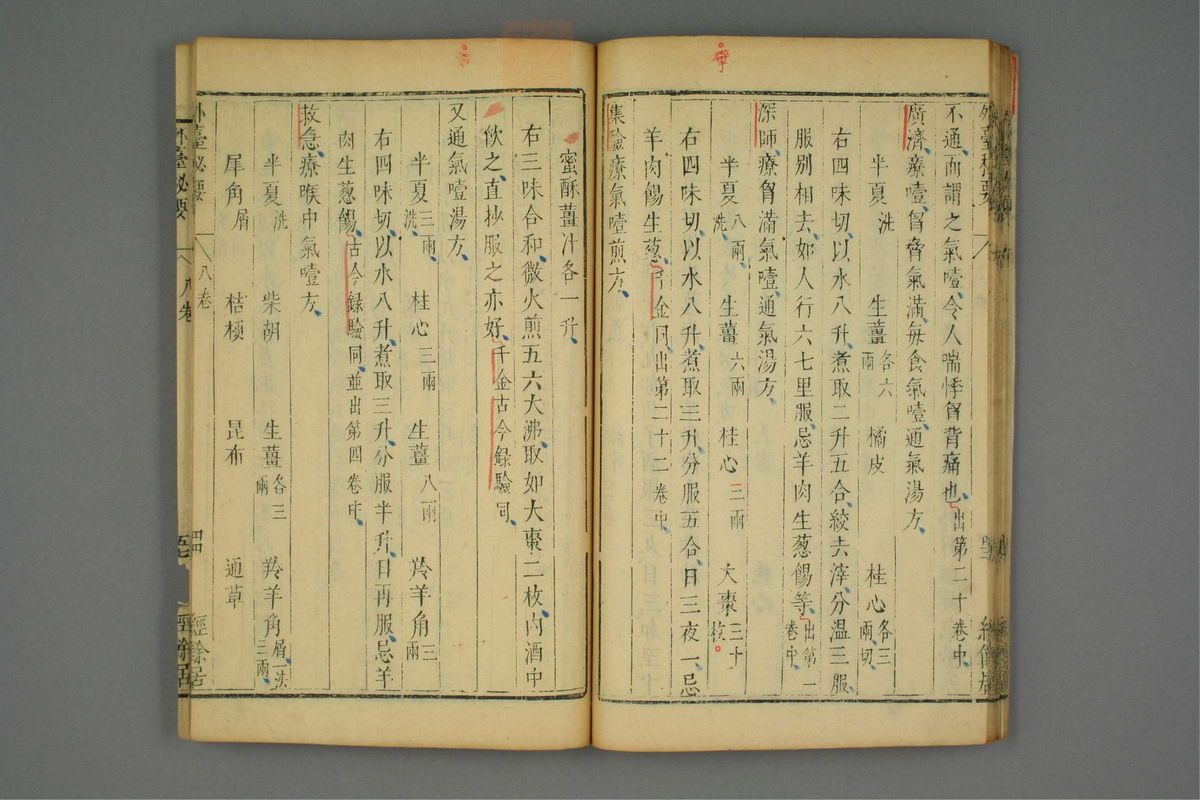 外臺秘要
不通而謂之氣噎令人喘悸胷背痛也出第二十卷中
廣濟療噎胷脅氣滿每食氣噎通氣湯方
半夏洗 生薑各六兩 橘皮 桂心各三兩切
右四味切以水八升煮取二升五合絞去滓分溫三服
服別相去如人行六七里服忌羊肉生葱餳等出第一卷中
深師療胷滿氣噎通氣湯方
半夏八兩洗 生薑六兩 桂心三兩 大棗三十枚
右四味切以水八升煮取三升分服五合日三夜一忌
羊肉餳生葱千金同出第二十二卷中
集驗療氣噎煎方
蜜酥薑汁各一升
右三味合和微火煎五六大沸取如大棗二枚內酒中
飲之直抄服之亦好千金古今録驗同
又通氣噎湯方
半夏三兩洗 桂心三兩 生薑八兩 羚羊角三兩
右四味切以水八升煮取三升分服半升日再服忌羊
肉生葱餳古今録驗同並出第四卷中
救急療喉中氣噎方
半夏洗 柴胡 生薑各三兩 羚羊角屑一法三兩
犀角屑 桔梗 昆布 通草
外臺秘要 八卷 四四 經餘居
外臺秘要 八卷 經餘居